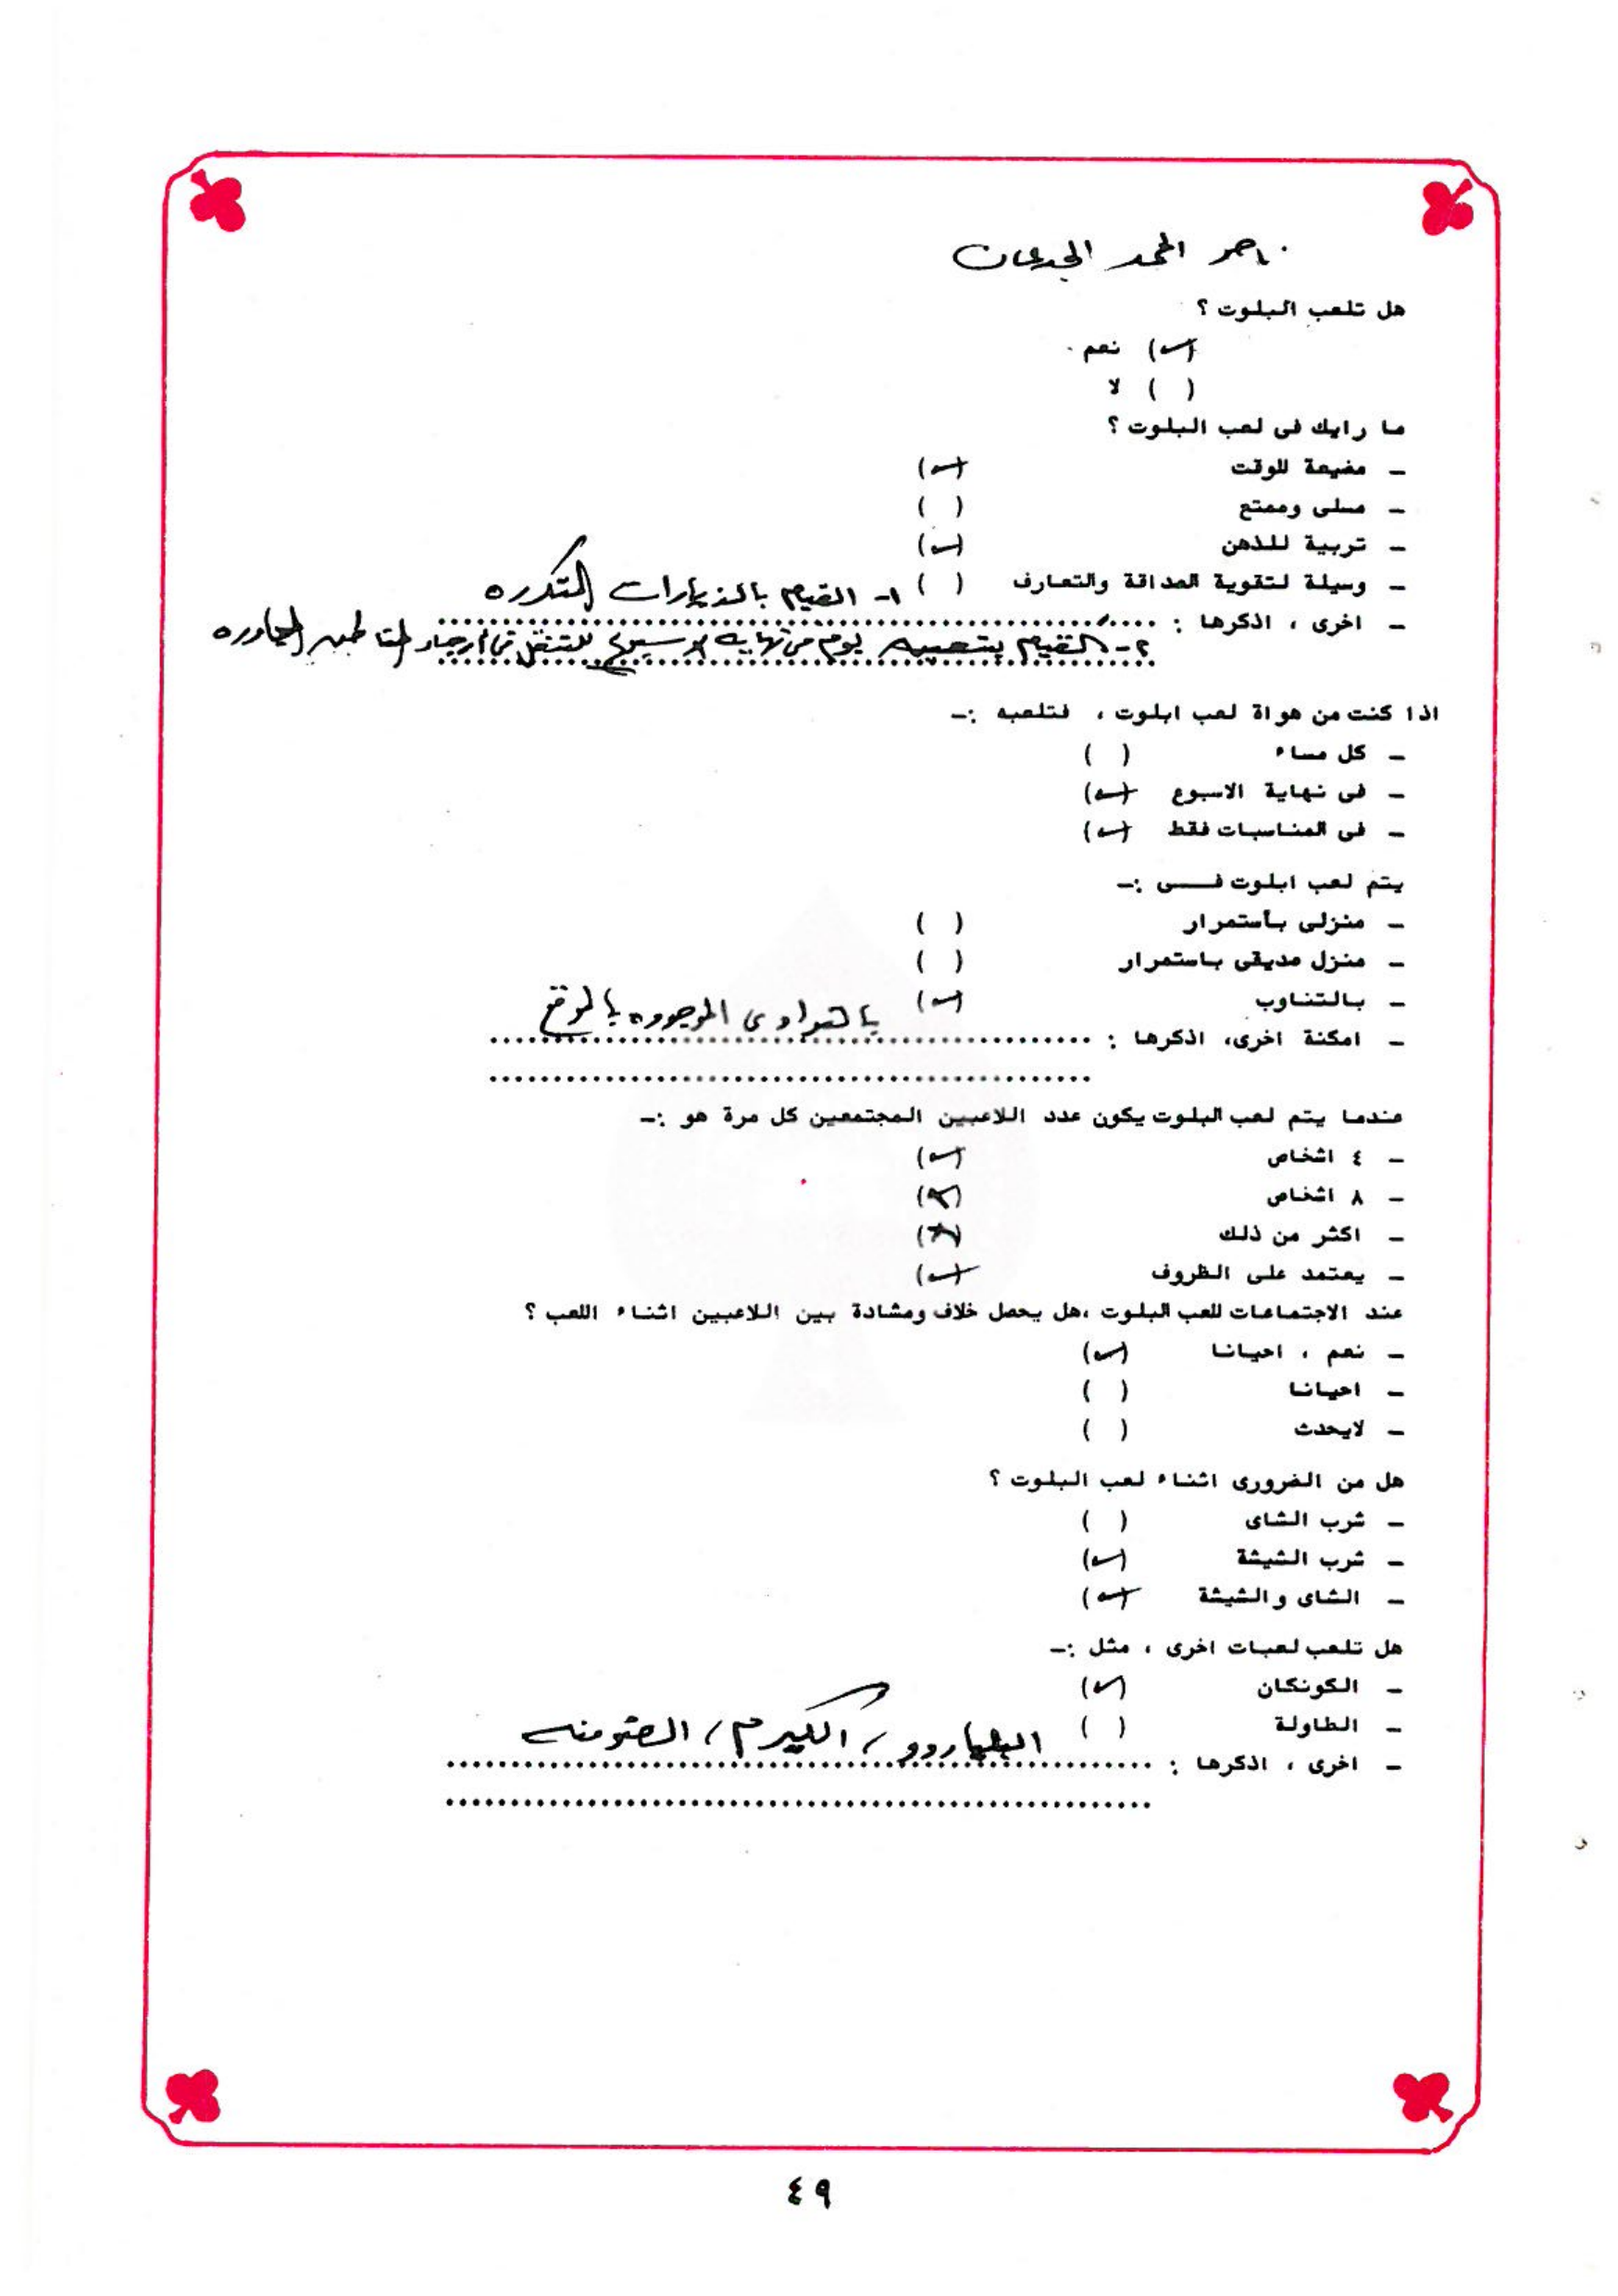 ناصر الحمد الجدعان
هل تلعب البلوت ؟
(✓) نعم
( ) لا
ما رايك فى لعب البلوت ؟
- مضيعة للوقت (✓)
- مسلى وممتع ( )
- تربية للذهن (✓)
- وسيلة لتقوية الصداقة والتعارف ( ) ١- القيام بالزيارات المتكرره
- اخرى ، اذكرها :
٢- القيام يوم من نهاية الاسبوع للتنقل المناطق المجاوره
اذا كنت من هواة لعب ابلوت ، فتلعبه :-
- كل مساء ( )
- فى نهاية الاسبوع (✓)
- فى المناسبات فقط (✓)
يتم لعب ابلوت فــــى :-
- منزلى بأستمرار ( )
- منزل صديقى باستمرار ( )
- بالتناوب (✓)
بالنوادى الموجوده بالموقع
- امكنة اخرى، اذكرها :
عندما يتم لعب البلوت يكون عدد اللاعبين المجتمعين كل مرة هو :-
- ٤ اشخاص (✓)
- ٨ اشخاص (x)
- اكثر من ذلك (x)
- يعتمد على الظروف (✓)
عند الاجتماعات للعب البلوت ،هل يحصل خلاف ومشادة بين اللاعبين اثناء اللعب ؟
- نعم ، احيانا (✓)
- احيانا ( )
- لايحدث ( )
هل من الضرورى اثناء لعب البلوت ؟
- شرب الشاى ( )
- شرب الشيشة (✓)
- الشاى والشيشة (✓)
هل تلعب لعبات اخرى ، مثل :-
- الكونكان (✓)
- الطاولة ( )
البلياردو / الكيرم /
- اخرى ، اذكرها :
٤٩